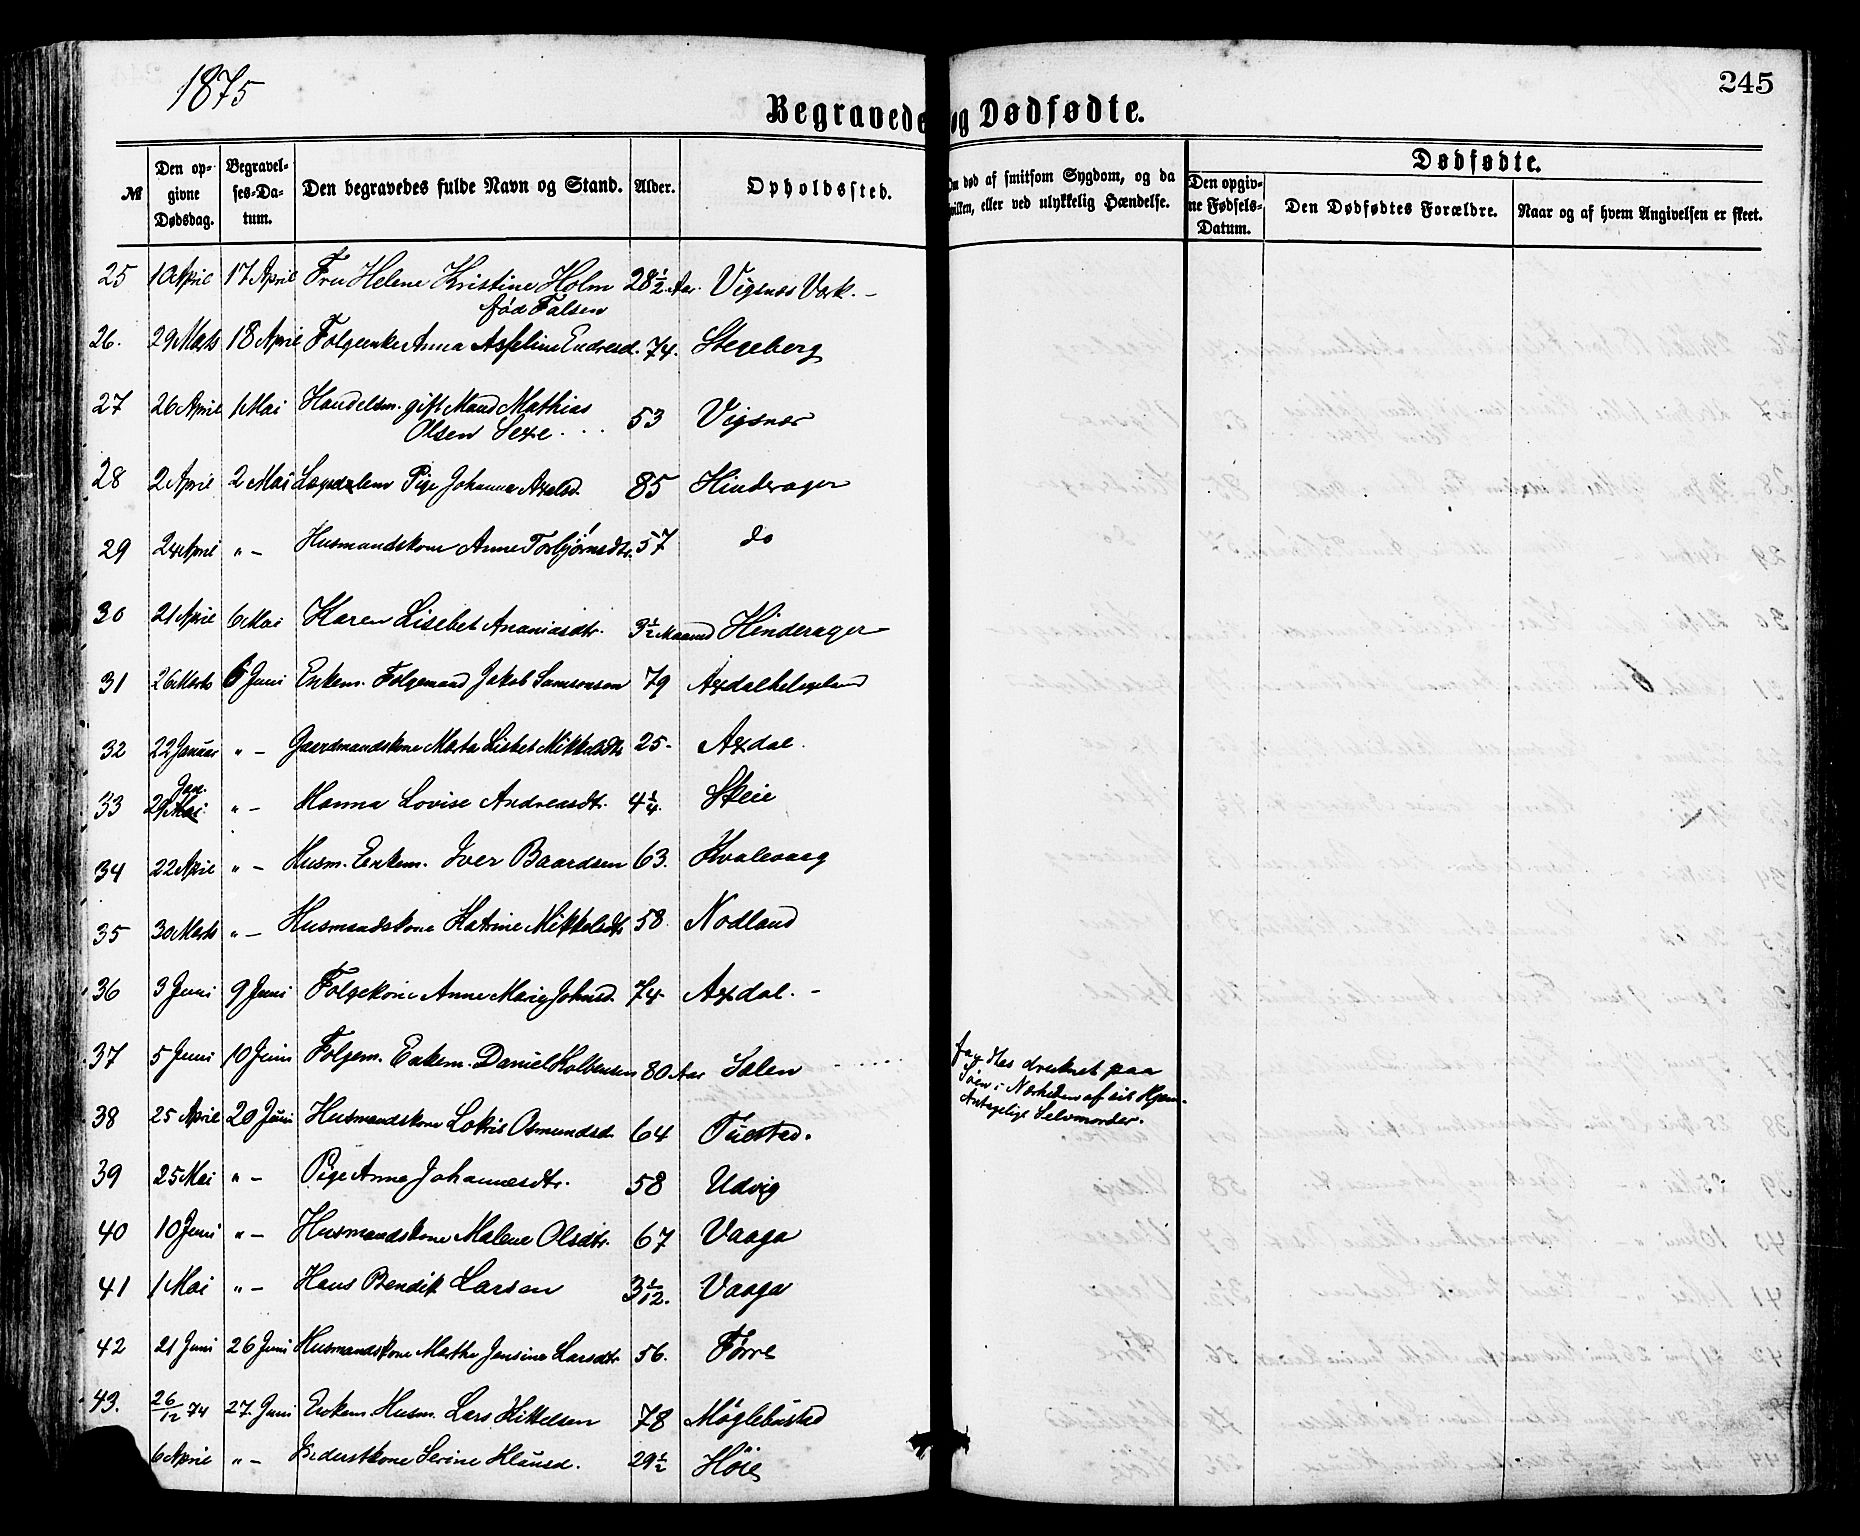 1875
245
Begravede og Dødfødte.
№ Den opgivne Dødsdag. Begravelses-Datum. Den begravedes fulde Navn og Stand. Alder. Opholdssted. død af smitsom Sygdom, og da hvilken, eller ved ulykkelig Hændelse. Dødfødte. Den opgivne Fødsels-Datum. Den Dødfødtes Forældre. Naar og af hvem Angivelsen er skeet.
25 10 April 17 April Fru Helene Kristine Holm 28½ Aar Vigsnes Verk. –
fød Falsen
26. 29 Marts 18 April Folgeenke Anna Asseline Endresd. 74. Stegeberg
27 26 April 1 Mai Handelsm. gift Mand Mathias 53 Vigsnes
Olsen Sexe . . .
28 2 April 2 Mai Lægdslem Pige Johanna Axelsd. 85 Hinderager
29 24 April " – Husmandskone Anne Torbjørnsdtr. 57 do
30 21 April 6 Mai Karen Lisebet Ananiasdtr. 3½ Maaned Hinderager
31 26 Marts 6 Juni Enkem. Folgemand Jakob Samsonsen 79 Axdalhelgeland
32 22 Januar " – Gaardmandskone Marta Lisbet Mikkelsdtr 25. Axdal.
Jan.
33 29 Mai. " – Hanna Lovise Andreasdtr. 4¼. Skeie
34 22 April " – Husm. Enkem. Iver Baardsen 63. Kvalevaag
35 30 Marts " – Husmandskone Katrine Mikkelsdtr 58. Nodland
36 3 Juni 9 Juni Folgekone Anne Marie Johnsd. 74. Axdal. –
37 5 Juni 10 Juni Folgem. Enkem. Daniel Kolbensen 80 Aar Salen
fandtes druknet paa
Søen i Nærheden af sit Hjem.
Antagelige Selvmorder.
38 25 April 20 Juni Husmandskone Lokris Osmundsd. 64 Tuestad.
39 25 Mai " – Pige Anna Johannesdtr. 58 Udvig
40 10 Juni " – Husmandskone Malene Olsdtr. 67 Vaaga
41 1 Mai " – Hans Bendik Larsen 3 1/12. Vaaga
42 21 Juni 26 Juni Husmandskone Marthe Jensine Larsdtr 56. Førre
43. 26/12 74 27. Juni Enkem. Husm. Lars Kittelsen 78 Møglebustad
6 April " – Serine Klausd. 29½ Høie